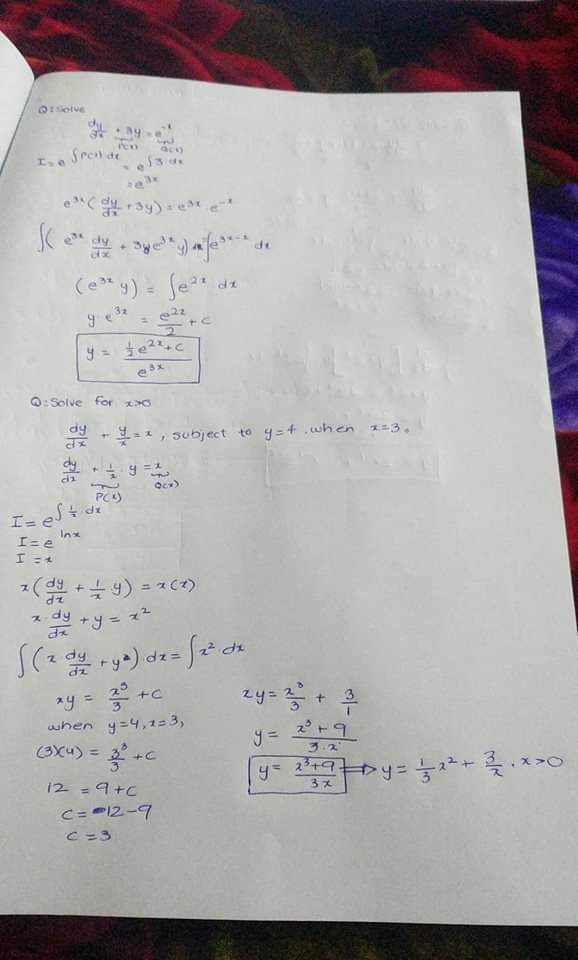 Q: Solve
dy/dx + 3y = e^-x
P(x) Q(x)
I = e^∫P(x)·dx = e^∫3·dx
= e^3x
e^3x (dy/dx + 3y) = e^3x e^-x
∫(e^3x dy/dx + 3e^3x y) = ∫e^3x-x dx
(e^3x y) = ∫e^2x dx
y e^3x = e^2x/2 + c
y = (1/2 e^2x + c)/e^3x
Q: Solve for x>0
dy/dx + y/x = x, subject to y=4, when x=3.
dy/dx + 1/x · y = x
P(x) Q(x)
I = e^∫1/x·dx
I = e^lnx
I = x
x(dy/dx + 1/x · y) = x(x)
x·dy/dx + y = x^2
∫(x dy/dx + y)·dx = ∫x^2 dx
xy = x^3/3 + c
when y=4, x=3,
(3)(4) = 3^3/3 + c
12 = 9 + c
c = 12-9
c = 3
xy = x^3/3 + 3/1
y = (x^3 + 9)/(3·x)
y = (x^3+9)/(3x) ⇒ y = 1/3 x^2 + 3/x, x>0